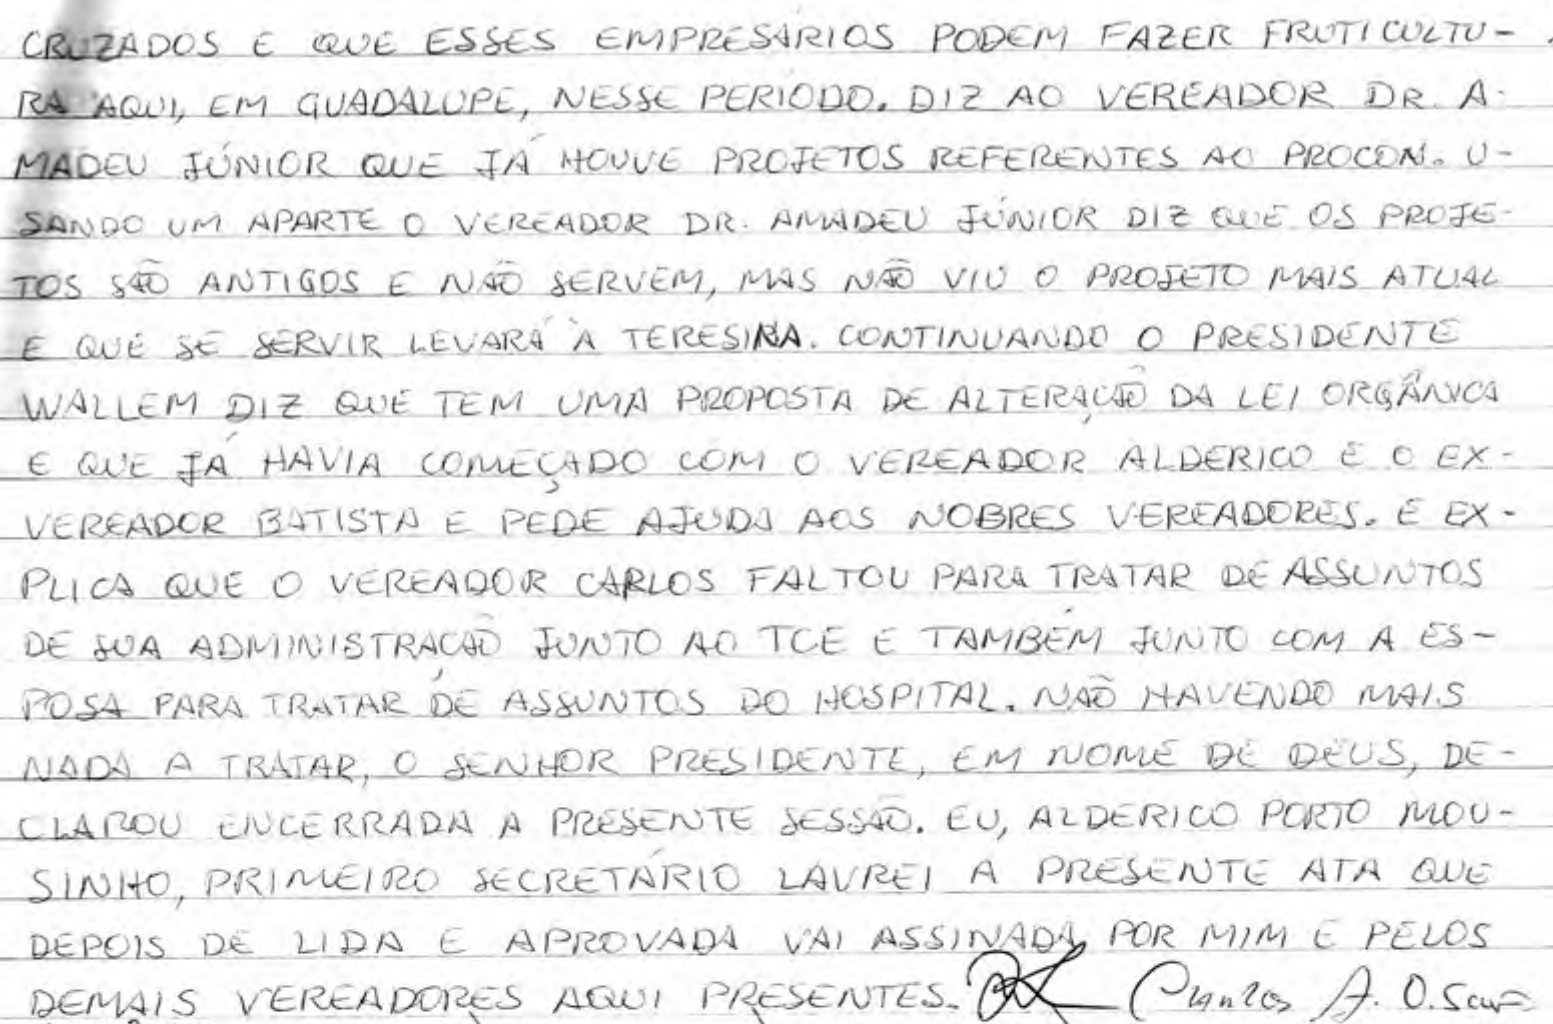 CRUZADOS E QUE ESSES EMPRESÁRIOS PODEM FAZER FRUTICULTU-
RA AQUI, EM GUADALUPE, NESSE PERÍODO. DIZ AO VEREADOR DR. A-
MADEU JÚNIOR QUE JÁ HOUVE PROJETOS REFERENTES AO PROCON. U-
SANDO UM APARTE O VEREADOR DR. AMADEU JÚNIOR DIZ QUE OS PROJE-
TOS SÃO ANTIGOS E NÃO SERVEM, MAS NÃO VIU O PROJETO MAIS ATUAL
E QUE SE SERVIR LEVARÁ À TERESINA. CONTINUANDO O PRESIDENTE
WALLEM DIZ QUE TEM UMA PROPOSTA DE ALTERAÇÃO DA LEI ORGÂNICA
E QUE JÁ HAVIA COMEÇADO COM O VEREADOR ALDERICO E O EX-
VEREADOR BATISTA E PEDE AJUDA AOS NOBRES VEREADORES. E EX-
PLICA QUE O VEREADOR CARLOS FALTOU PARA TRATAR DE ASSUNTOS
DE SUA ADMINISTRAÇÃO JUNTO AO TCE E TAMBÉM JUNTO COM A ES-
POSA PARA TRATAR DE ASSUNTOS DO HOSPITAL. NÃO HAVENDO MAIS
NADA A TRATAR, O SENHOR PRESIDENTE, EM NOME DE DEUS, DE-
CLAROU ENCERRADA A PRESENTE SESSÃO. EU, ALDERICO PORTO MOU-
SINHO, PRIMEIRO SECRETÁRIO LAVREI A PRESENTE ATA QUE
DEPOIS DE LIDA E APROVADA VAI ASSINADA POR MIM E PELOS
DEMAIS VEREADORES AQUI PRESENTES. A. O.